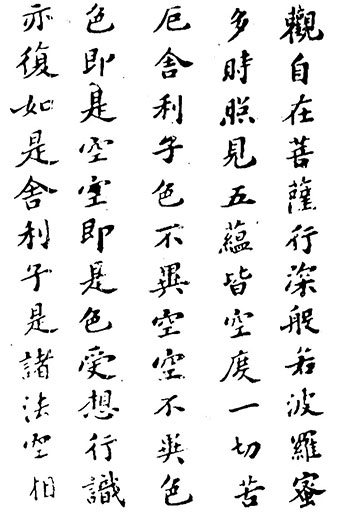 觀自在菩薩行深般若波羅蜜
多時照見五蘊皆空度一切苦
厄舍利子色不異空空不異色
色即是空空即是色受想行識
亦復如是舍利子是諸法空相